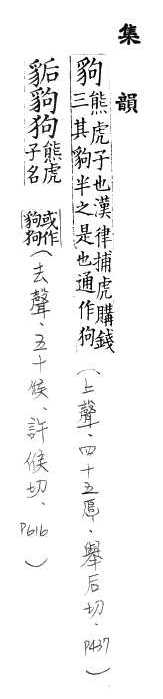 集韻
豿
熊虎子也漢律捕虎購錢
三其豿半之是也通作狗
(上聲、四十五厚、舉后切、P437)
豿狗
熊虎
子名
或作
豿狗
(去聲、五十候、許候切、P616)